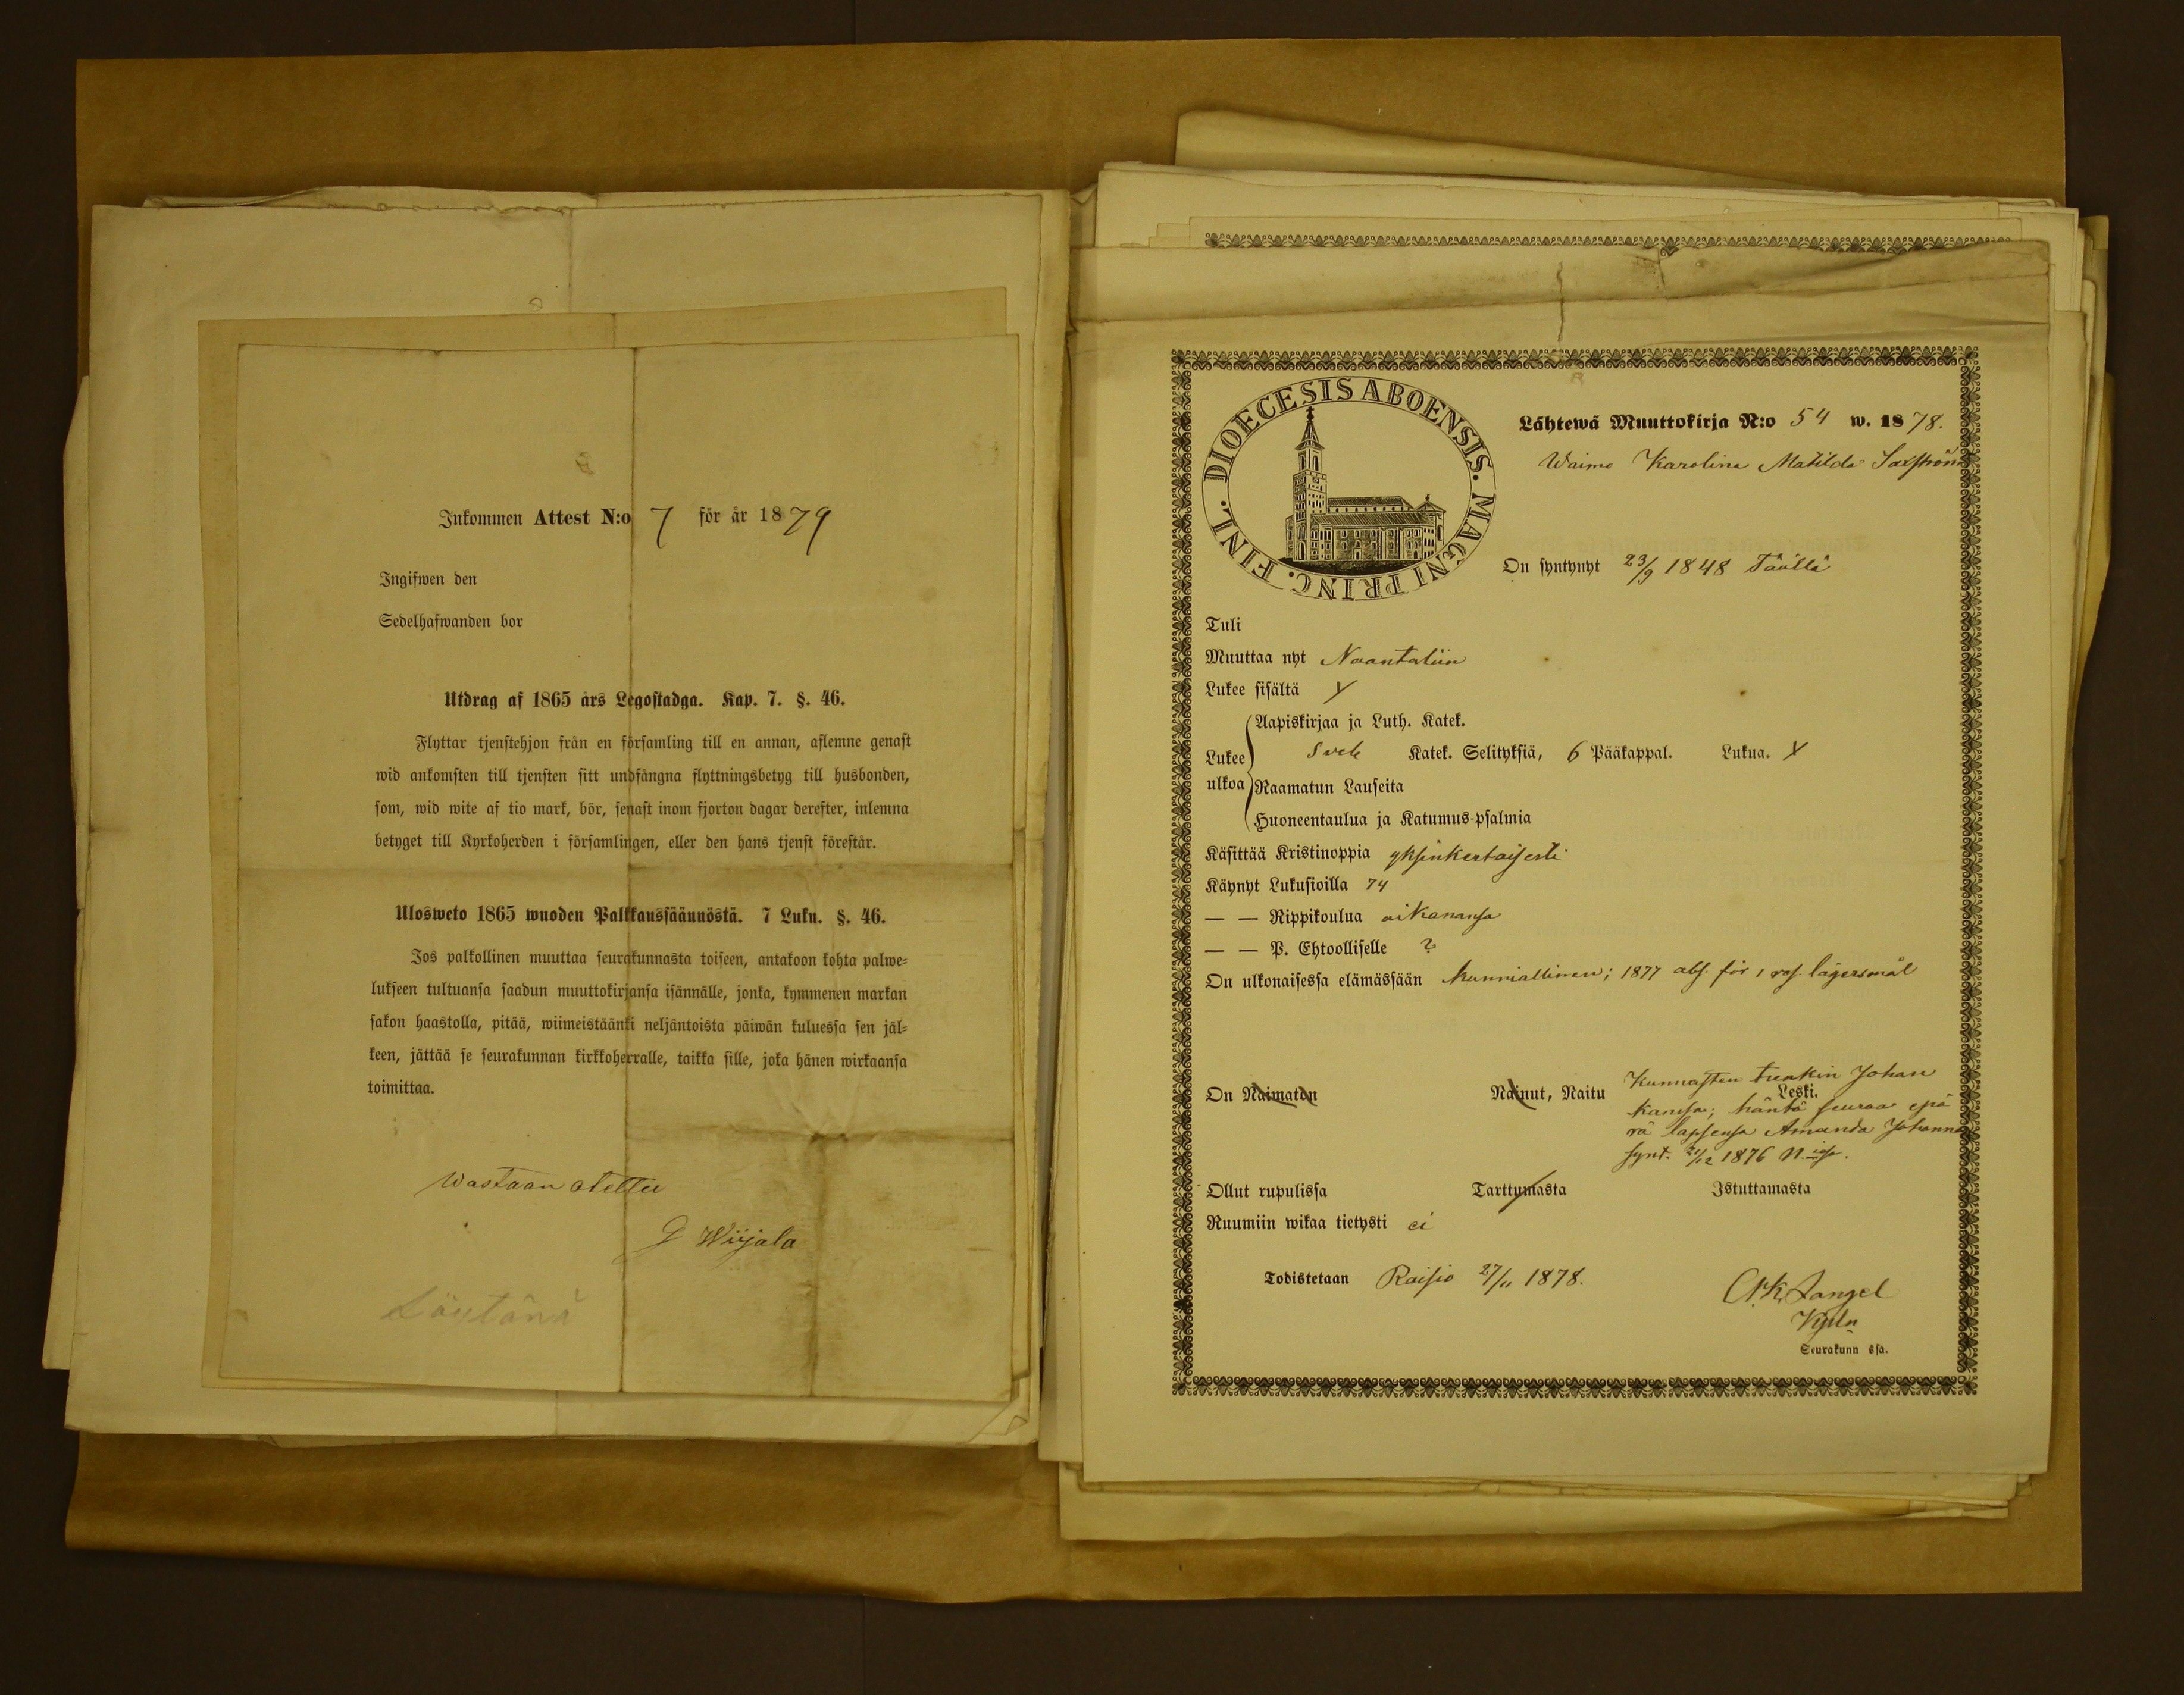 Inkommen Attest N:o 7 för år 1879
Ingifwen den
Sedelhafwanden bor
Utdrag af 1865 års Legostadga. Kap. 7. §. 46.
Flyttar tjenstehjon från en församling till en annan, aflemne genast
wid ankomsten till tjensten sitt undfångna flyttningsbetyg till husbonden,
som, wid wite af tio mark, bör, senast inom fjorton dagar derefter, inlemna
betyget till Kyrkoherden i församlingen, eller den hans tjenst förestår.
Ulosweto 1865 wuoden Palkkaussäännöstä. 7 Luku. §. 46.
Jos palkollinen muuttaa seurakunnasta toiseen, antakoon kohta palwe=
lukseen tultuansa saadun muuttokirjansa isännälle, jonka, kymmenen markan
sakon haastolla, pitää, wiimeistäänki neljäntoista päiwän kuluessa sen jäl=
keen, jättää se seurakunnan kirkkoherralle, taikka sille, joka hänen wirkaansa
toimittaa.
Wastaan otettu
G Wiijala
DIOECESIS ABOENSIS. MAGNI PRINC. FINL.
Lähtewä Muuttokirja N:o 54 w. 1878.
Waimo Karolina Matilda Saxström
On syntynyt 23/9 1848 Täällä
Tuli
Muuttaa nyt Naantaliin
Lukee sisältä
Aapiskirjaa ja Luth. Katek.
Lukee Sveb Katek. Selityksiä, 6 Pääkappal. Lukua.
ulkoa Raamatun Lauseita
Huoneentaulua ja Katumus-psalmia
Käsittää Kristinoppia yksinkertaisesti
Käynyt Lukusioilla 74
— — Rippikoulua aikanansa
— — P. Ehtoolliselle ?
On ulkonaisessa elämässään kunniallinen; 1877 abs. för 1 res. lägersmål
On Naimaton Nainut, Naitu Leski.
Johan
kanssa; häntä seuraa epä
rä lapsensa Amanda Johanna
synt. 21/12 1876
Ollut rupulissa Tarttumasta Istuttamasta
Ruumiin wikaa tietysti ei
Todistetaan Raisio 27/11 1878.
Seurakunn ssa.